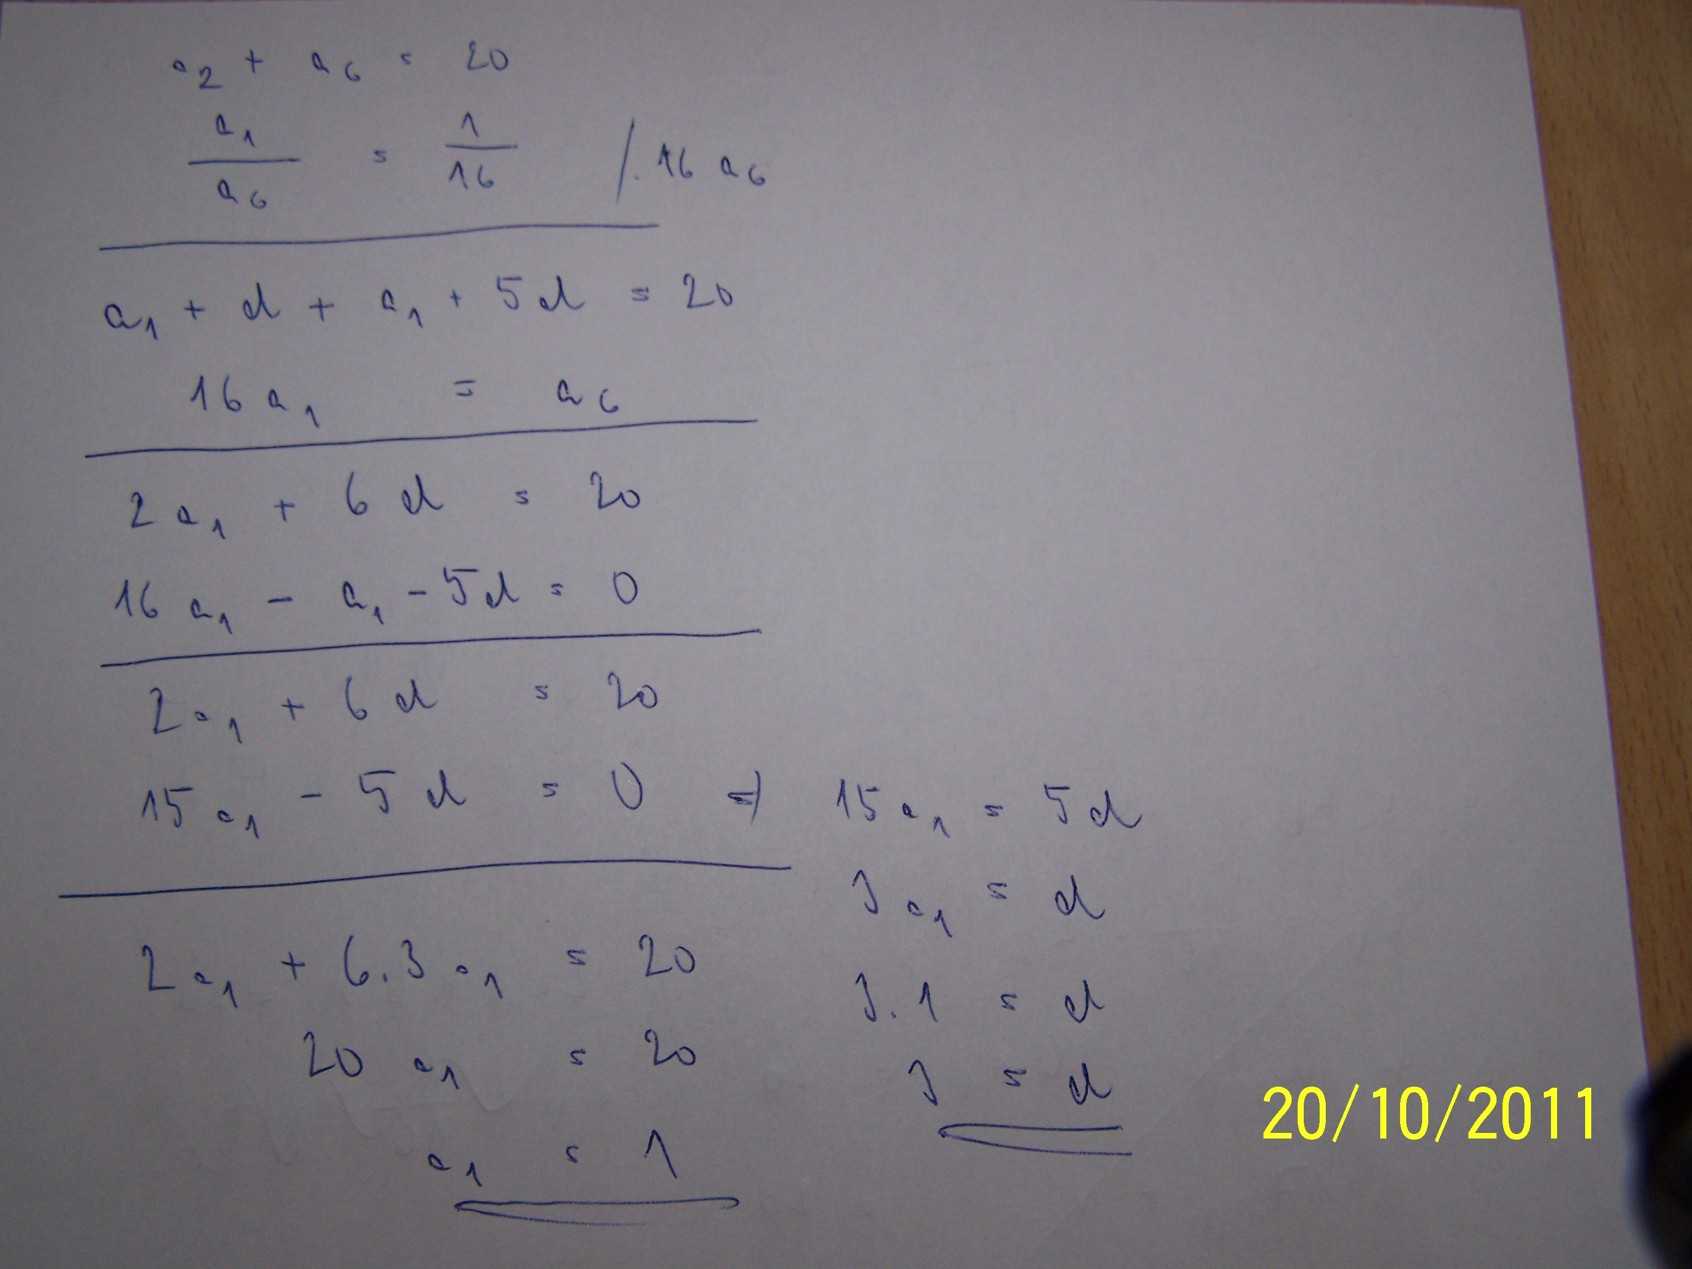 a₂ + a₆ = 20
a₁/a₆ = 1/16 /. 16 a₆
a₁ + d + a₁ + 5d = 20
16 a₁ = a₆
2a₁ + 6d = 20
16 a₁ - a₁ - 5d = 0
2a₁ + 6d = 20
15a₁ - 5d = 0 ⇒ 15a₁ = 5d
3a₁ = d
2a₁ + 6.3a₁ = 20
3.1 = d
20 a₁ = 20
3 = d
a₁ = 1
20/10/2011